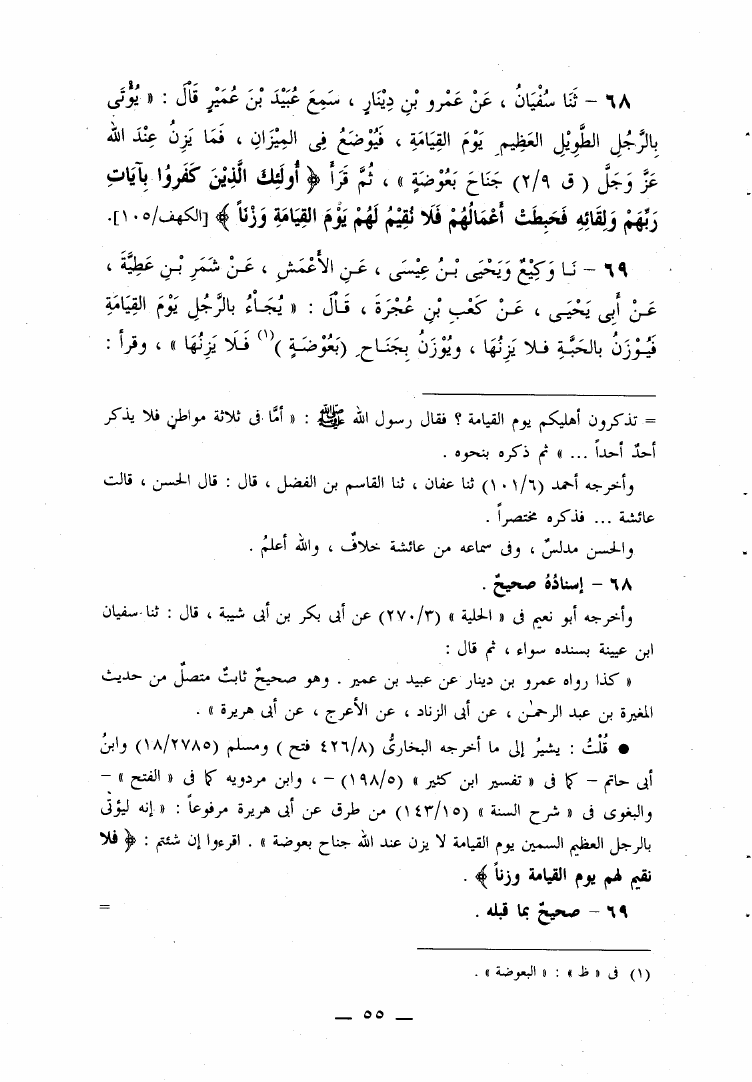 ٦٨ – ثَنَا سُفْيَانُ ، عَنْ عَمْرِو بْنِ دِيْنَارٍ ، سَمِعَ عُبَيْدَ بْنَ عُمَيْرٍ قَالَ : « يُؤْتَى
بِالرَّجُلِ الطَّوِيْلِ العَظِيمِ يَوْمَ القِيَامَةِ ، فَيُوْضَعُ فِى المِيْزَانِ ، فَمَا يَزِنُ عِنْدَ اللهُ
عَزَّ وَجَلَّ ( ق ٢/٩) جَنَاحَ بَعُوْضَةٍ » ، ثُمَّ قَرَأَ ﴿ أُولَئِكَ الَّذِيْنَ كَفَرُوْا بِآيَاتِ
رَبِّهِمْ وَلِقَائِهِ فَحَبِطَتْ أَعْمَالُهُمْ فَلَا نُقِيْمُ لَهُمْ يَوْمَ القِيَامَةِ وَزْناً ﴾ [الكهف/١٠٥].
٦٩ – نَا وَكِيْعٌ وَيَحْيَى بْنُ عِيْسَى ، عَنِ الأَعْمَشِ ، عَنْ شَمَرِ بْنِ عَطِيَّةَ ،
عَنْ أَبِى يَحْيَى ، عَنْ كَعْبِ بْنِ عُجْرَةَ ، قَالَ : « يُجَاْءُ بالرَّجُلِ يَوْمَ القِيَامَةِ
فَيُوْزَنُ بالحَبَّةِ فلا يَزِنُهَا ، ويُوْزَنُ بِجَنَاحِ (بَعُوْضَةٍ )(١) فَلَا يَزِنُهَا » ، وقرأ :
= تذكرون أهليكم يوم القيامة ؟ فقال رسول الله ﷺ : « أمَّا فى ثلاثة مواطنٍ فلا يذكر
أحدٌ أحداً ... » ثم ذكره بنحوه .
وأخرجه أحمد (١٠١/٦) ثنا عفان ، ثنا القاسم بن الفضل ، قال : قال الحسن ، قالت
عائشة ... فذكره مختصراً .
والحسن مدلسٌ ، وفى سماعه من عائشة خلافٌ ، والله أعلمُ .
٦٨ – إسنادُهُ صحيحٌ .
وأخرجه أبو نعيم فى « الحلية » (٢٧٠/٣) عن أبى بكر بن أبى شيبة ، قال : ثنا سفيان
ابن عيينة بسنده سواء ، ثم قال :
« كذا رواه عمرو بن دينار عن عبيد بن عمير . وهو صحيحٌ ثابتٌ متصلٌ من حديث
المغيرة بن عبد الرحمٰن ، عن أبى الزناد ، عن الأعرج ، عن أبى هريرة » .
● قُلْتُ : يشيرُ إلى ما أخرجه البخارىُّ (٤٢٦/٨ فتح ) ومسلم (١٨/٢٧٨٥) وابنُ
أبى حاتم – كما فى « تفسير ابن كثير » (١٩٨/٥) – ، وابن مردويه كما فى « الفتح » –
والبغوى فى « شرح السنة » (١٤٣/١٥) من طرق عن أبى هريرة مرفوعاً : « إنه ليؤتى
بالرجل العظيم السمين يوم القيامة لا يزن عند الله جناح بعوضة » . اقرءوا إن شئتم : ﴿ فلا
نقيم لهم يوم القيامة وزناً ﴾ .
٦٩ – صحيحٌ بما قبله .
=
(١) فى « ظ » : « البعوضة » .
— ٥٥ —